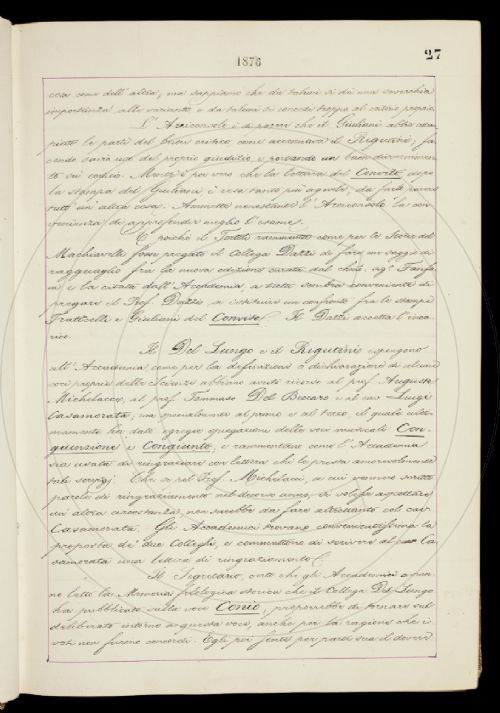 27
1876
cosa come dell'altra; ma sappiamo che da taluni si dà una soverchia
importanza alle varianti e da taluni si concede troppo al criterio proprio.
L'Arciconsolo è di parere che il Giuliani abbia com
piuto le parti del buon critico come accennava il Rigutini, fa
cendo savio uso del proprio giudizio e portando un buon
su i codici. Ma egli è pur vero che la lettura del Convito, dopo
la stampa del Giuliani è cosa tanto più agevole, da farlo parere
tutt'un'altra cosa. Ammette nonostante l'Arciconsolo la con
venienza di approfondir meglio l'esame.
E poichè il Tortoli rammenta come per le Storie del
Machiavelli fosse pregato il Collega Dazzi di fare un saggio di
ragguaglio fra la nuova edizione curata dal chiar. sig. Fanfa
ni e la citata dall'Accademia, a tutti sembra conveniente di
pregare il Prof. Dazzi, a istituire un confronto fra le stampe
Fraticelli e Giuliani del Convito. Il Dazzi accetta l'inca
rico.
Il Del Lungo e il Rigutini espongono
all'Accademia come per la definizione o dichiarazione di alcune
voci proprie delle Scienze abbiano avuto ricorso al prof. Augusto
Michelacci, al prof. Tommaso Del Beccaro e al cav. Luigi
Casamorata, ma specialmente al primo e al terzo, il quale ulti
mamente ha dato egregie spiegazioni delle voci musicali Con
giunzione e Congiunto, e rammentano come l'Accademia
sia usata di ringraziare con lettera chi le presta amorevolmente
tali servigi. Che se pel Prof. Michelacci, a cui vennero scritte
parole di ringraziamento nel decorso anno, si volesse aspettare
un'altra circostanza, non sarebbe da fare altrettanto col cav.
Casamorata. Gli Accademici trovano convenientissima la
proposta de' due Colleghi, e commettono di scrivere al cav. Ca
samorata una lettera di ringraziamento.
Il Segretario, certo che gli Accademici
no letto la Memoria filologica storica che il Collega Del Lungo
ha pubblicato sulla voce Conio, proporrebbe di tornare sul
deliberato intorno a questa voce, anche per la ragione che i
voti non furono concordi. Egli poi sente per parte sua il dovere